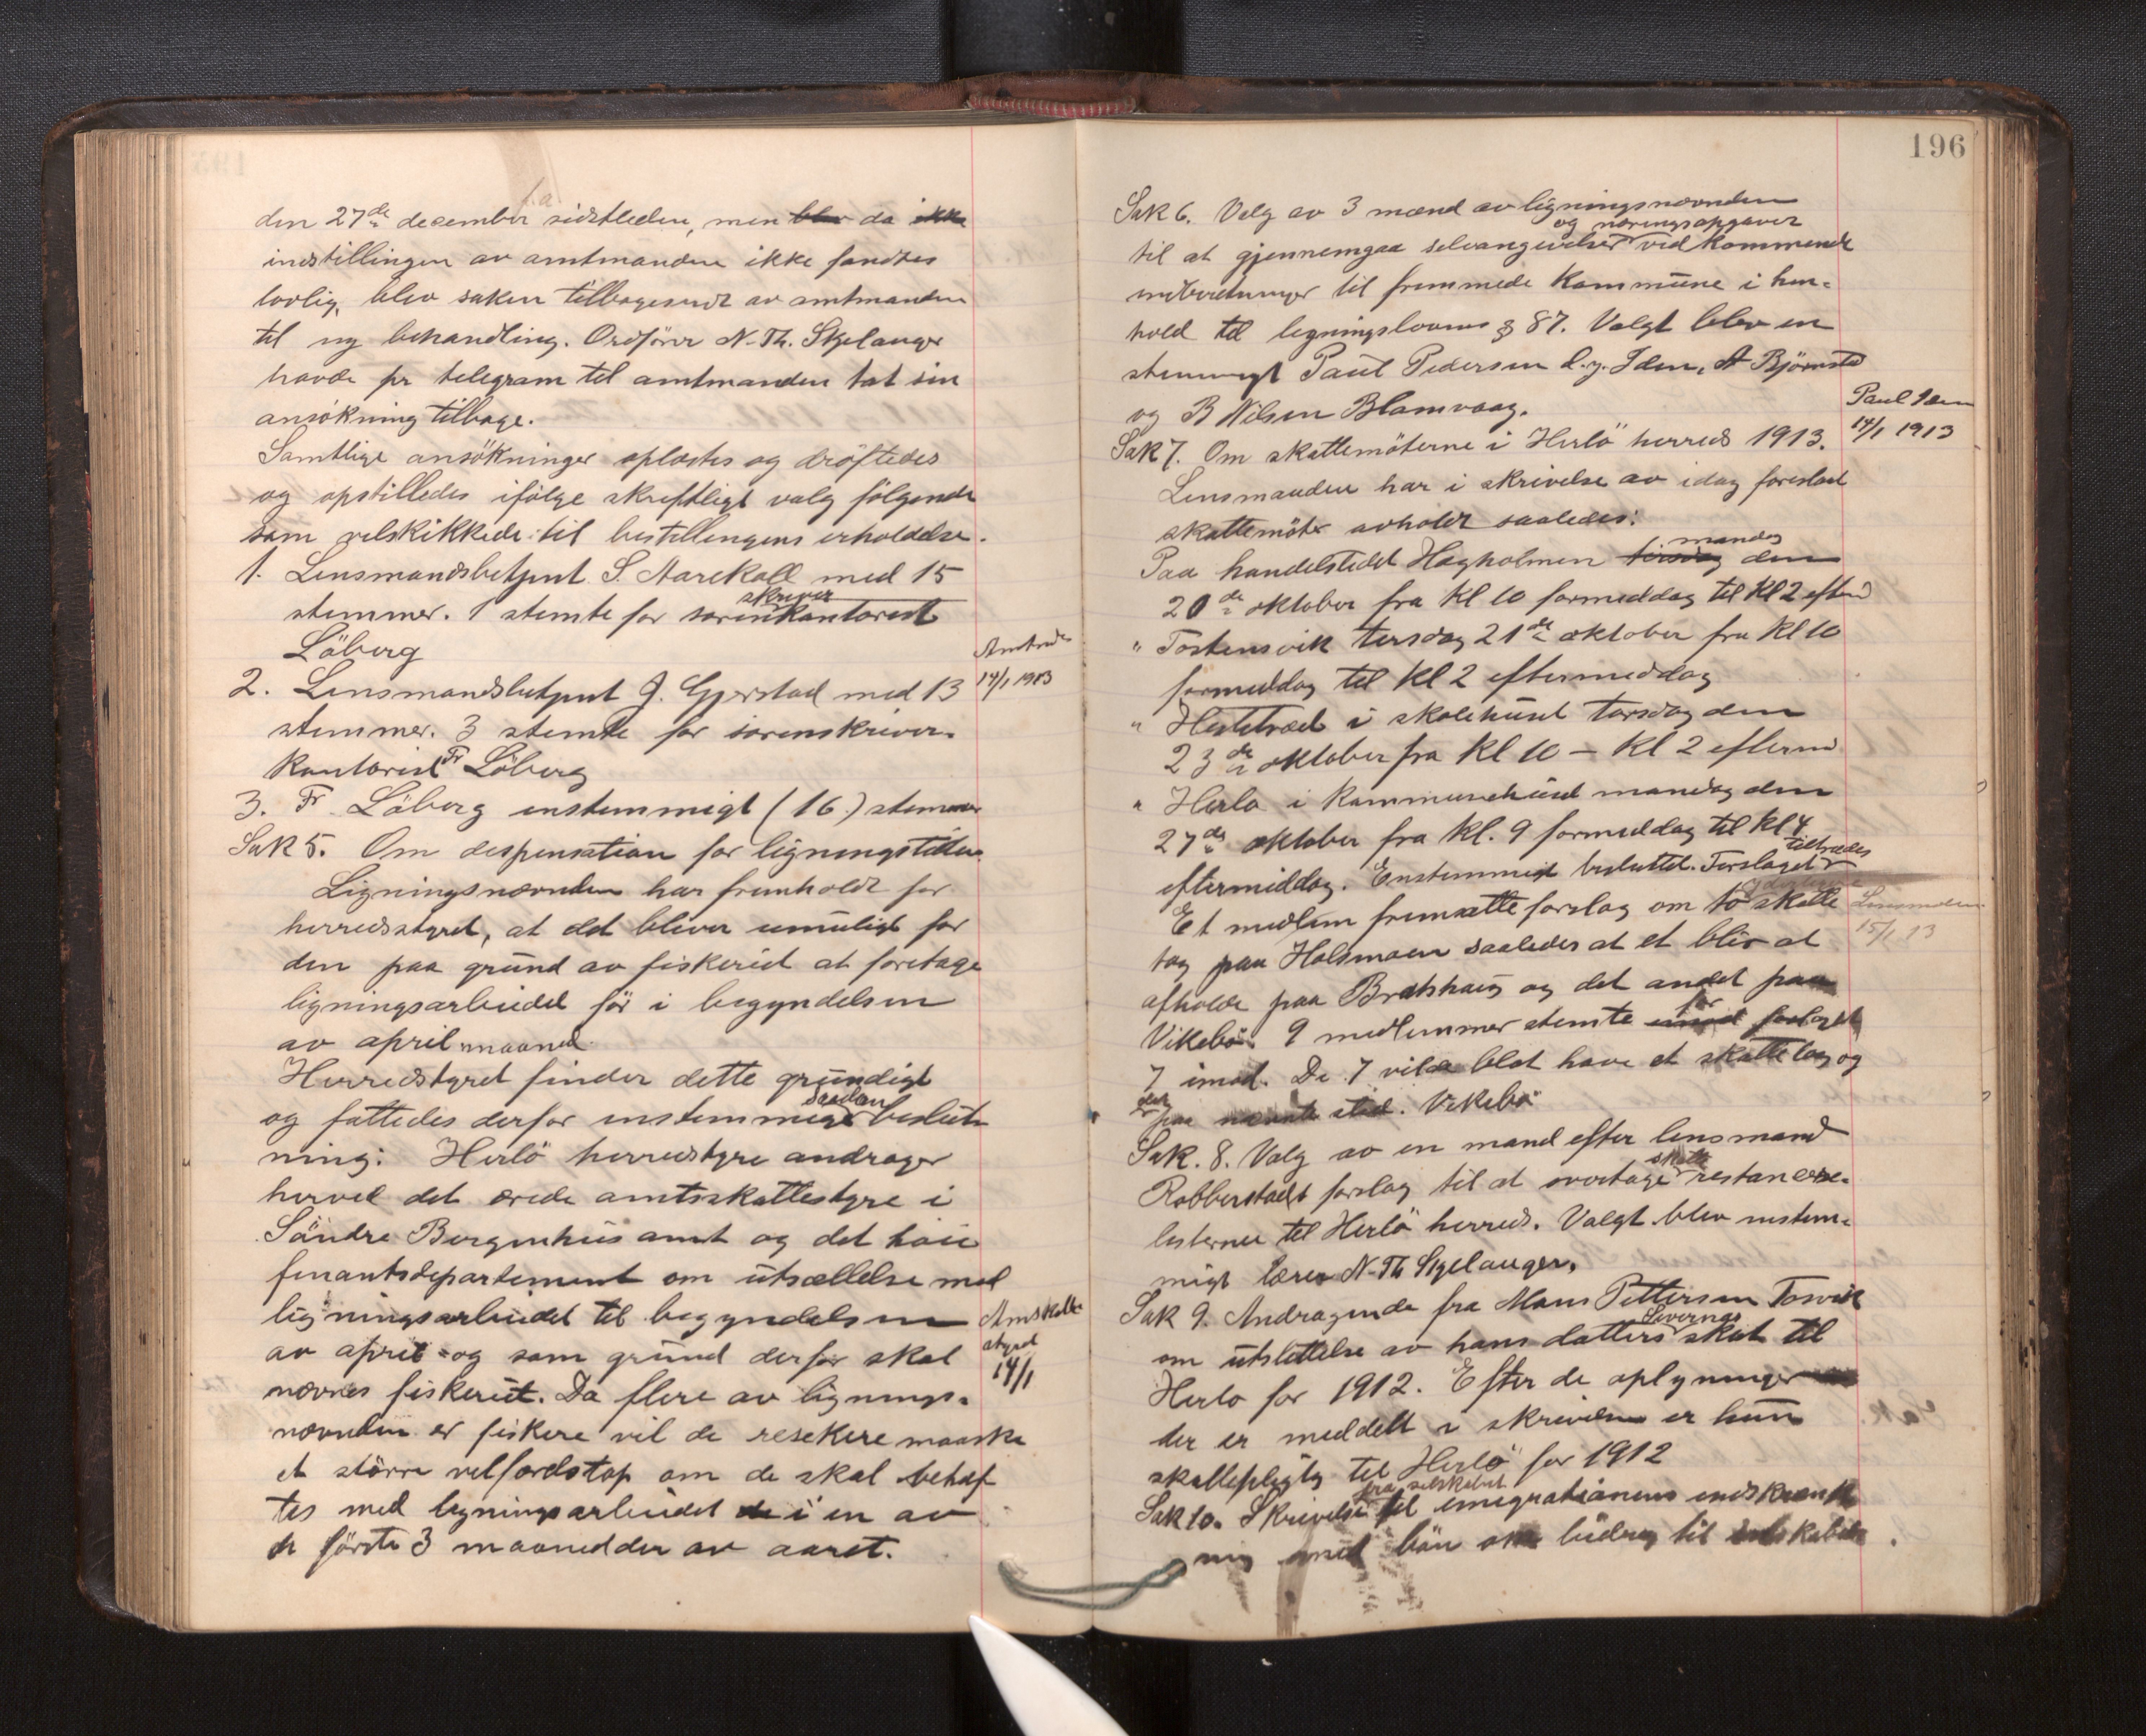 den 27de december sidstleden, men blev da ikke
indstillingen av amtmanden ikke fandtes
lovlig, blev saken tilbagesendt av amtmanden
til ny behandling. Ordfører N. Th. Skjelanger
havde pr telegram til amtmanden tat sin
ansökning tilbage.
Samtlige ansökninger oplæstes og dröftedes
og opstilledes ifölge skriftligt valg fölgende
som velskikkede til bestillingens erholdelse.
1. Lensmandsbetjent S. Aarekoll med 15
stemmer. 1 stemte for sorenskriverkontorist
Löberg
2. Lensmandsbetjent J. Gjerstad med 13
Amtmd 14/1 1913
stemmer. 3 stemte for sorenskriver-
kontorist Fr Löberg
3. Fr Löberg enstemmigt (16) stemmer
Sak 5. Om dispensation for ligningstiden.
Ligningsnævnden har fremholdt for
herredsstyret, at det bliver umuligt for
den paa grund av fiskeriet at foretage
ligningsarbeidet för i begyndelsen
av april maaned.
Herredstyret finder dette grundigt
og fattedes derfor enstemmigt saadan beslut-
ning: Herlö herredstyre andrager
herved det ærede amtsskattestyre i
Söndre Bergenhus amt og det höie
finantsdepartement om utsættelse med
ligningsarbeidet til begyndelsen
av april og som grund derfor skal
Amtskatte
styret
14/1
nævnes fiskeriet. Da flere av lignings-
nævnden er fiskere vil de resekere maaske
et större velfærdstap om de skal behæf
tes med ligningsarbeidet de i en av
de förste 3 maanedder av aaret.
196
Sak 6. Valg av 3 mænd av ligningsnævnden
til at gjennemgaa selvangivelser og næringsopgaver vedkommende
indberetninger til fremmede kommune i hen-
hold til ligningslovens § 87. Valgt blev en
stemmigt Paul Pedersen d.y. Iden, A Björnstad
og B Nilsen Blomvaag.
Paul Iden
14/1 1913
Sak 7. Om skattemöterne i Herlö herred 1913.
Lensmanden har i skrivelse av idag foreslaat
skattemöter avholdt saaledes:
Paa handelstedet Hagholmen tirsdag mandag den
20de oktober fra kl 10 formeddag til kl 2 efterm
" Tostensvik tirsdag 21de oktober fra kl 10
formeddag til kl 2 eftermeddag
" Hestetræd i skolehuset torsdag den
23de oktober fra kl 10 – kl 2 efterm
" Herlo i kommunehuset mandag den
27de oktober fra kl. 9 formeddag til kl 4
eftermiddag. Enstemmigt besluttet. Forslaget tiltrædes
Et medlem fremsatte forslag om to skatte
Lensmanden
15/1 13
tog paa Holsnøen saaledes at et blir at
afholde paa Bratshaug og det andet paa
Vikebö. 9 medlemmer stemte imod for forslaget
7 imod. De 7 vilde blot have et skattetog og
det paa nævnte sted. Vikebö
Sak. 8. Valg av en mand efter lensmand
Robberstads forslag til at overtage skatte restance-
listerne til Herlö herred. Valgt blev enstem-
migt lærer N. Th Skjelanger.
Sak 9. Andragende fra Mons Pettersen Tosvik
om utslettelse av hans datters Severnes skat til
Herlo for 1912. Efter de oplysninger
der er meddelt i skrivelsen er hun
skattepligtig til Herlö for 1912
Sak 10. Skrivelse fra selskabet til emigrationens indskrænk
ning med bön om bidrag til selskabet.